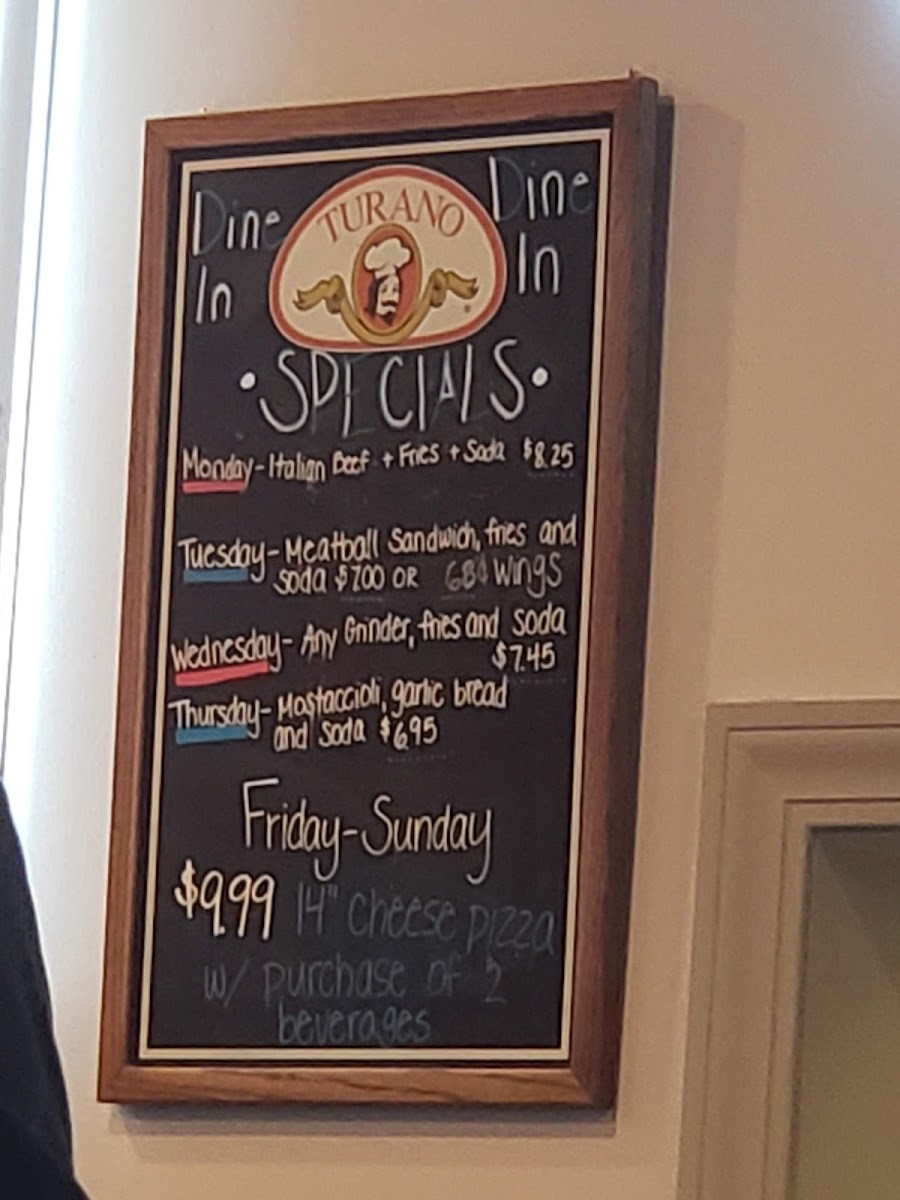 Dine In
TURANO
Dine In
• SPECIALS •
Monday - Italian Beef + Fries + Soda $8.25
Tuesday - Meatball Sandwich, fries and
soda $7.00 OR 68¢ Wings
Wednesday - Any Grinder, fries and soda
$7.45
Thursday - Mostaccioli, garlic bread
and soda $6.95
Friday - Sunday
$9.99 14" cheese pizza
w/ purchase of 2
beverages